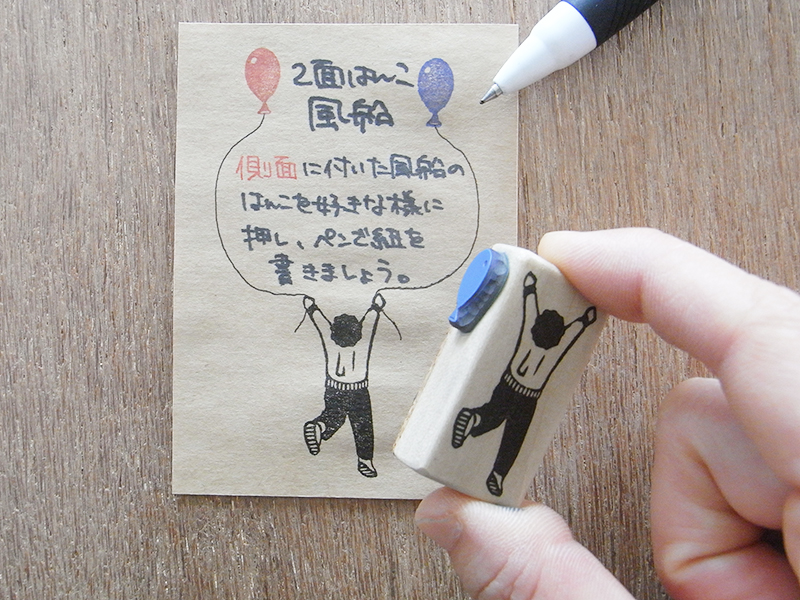 2面はんこ
風船
側面に付いた風船の
はんこを好きな様に
押し、ペンで紐を
書きましょう。